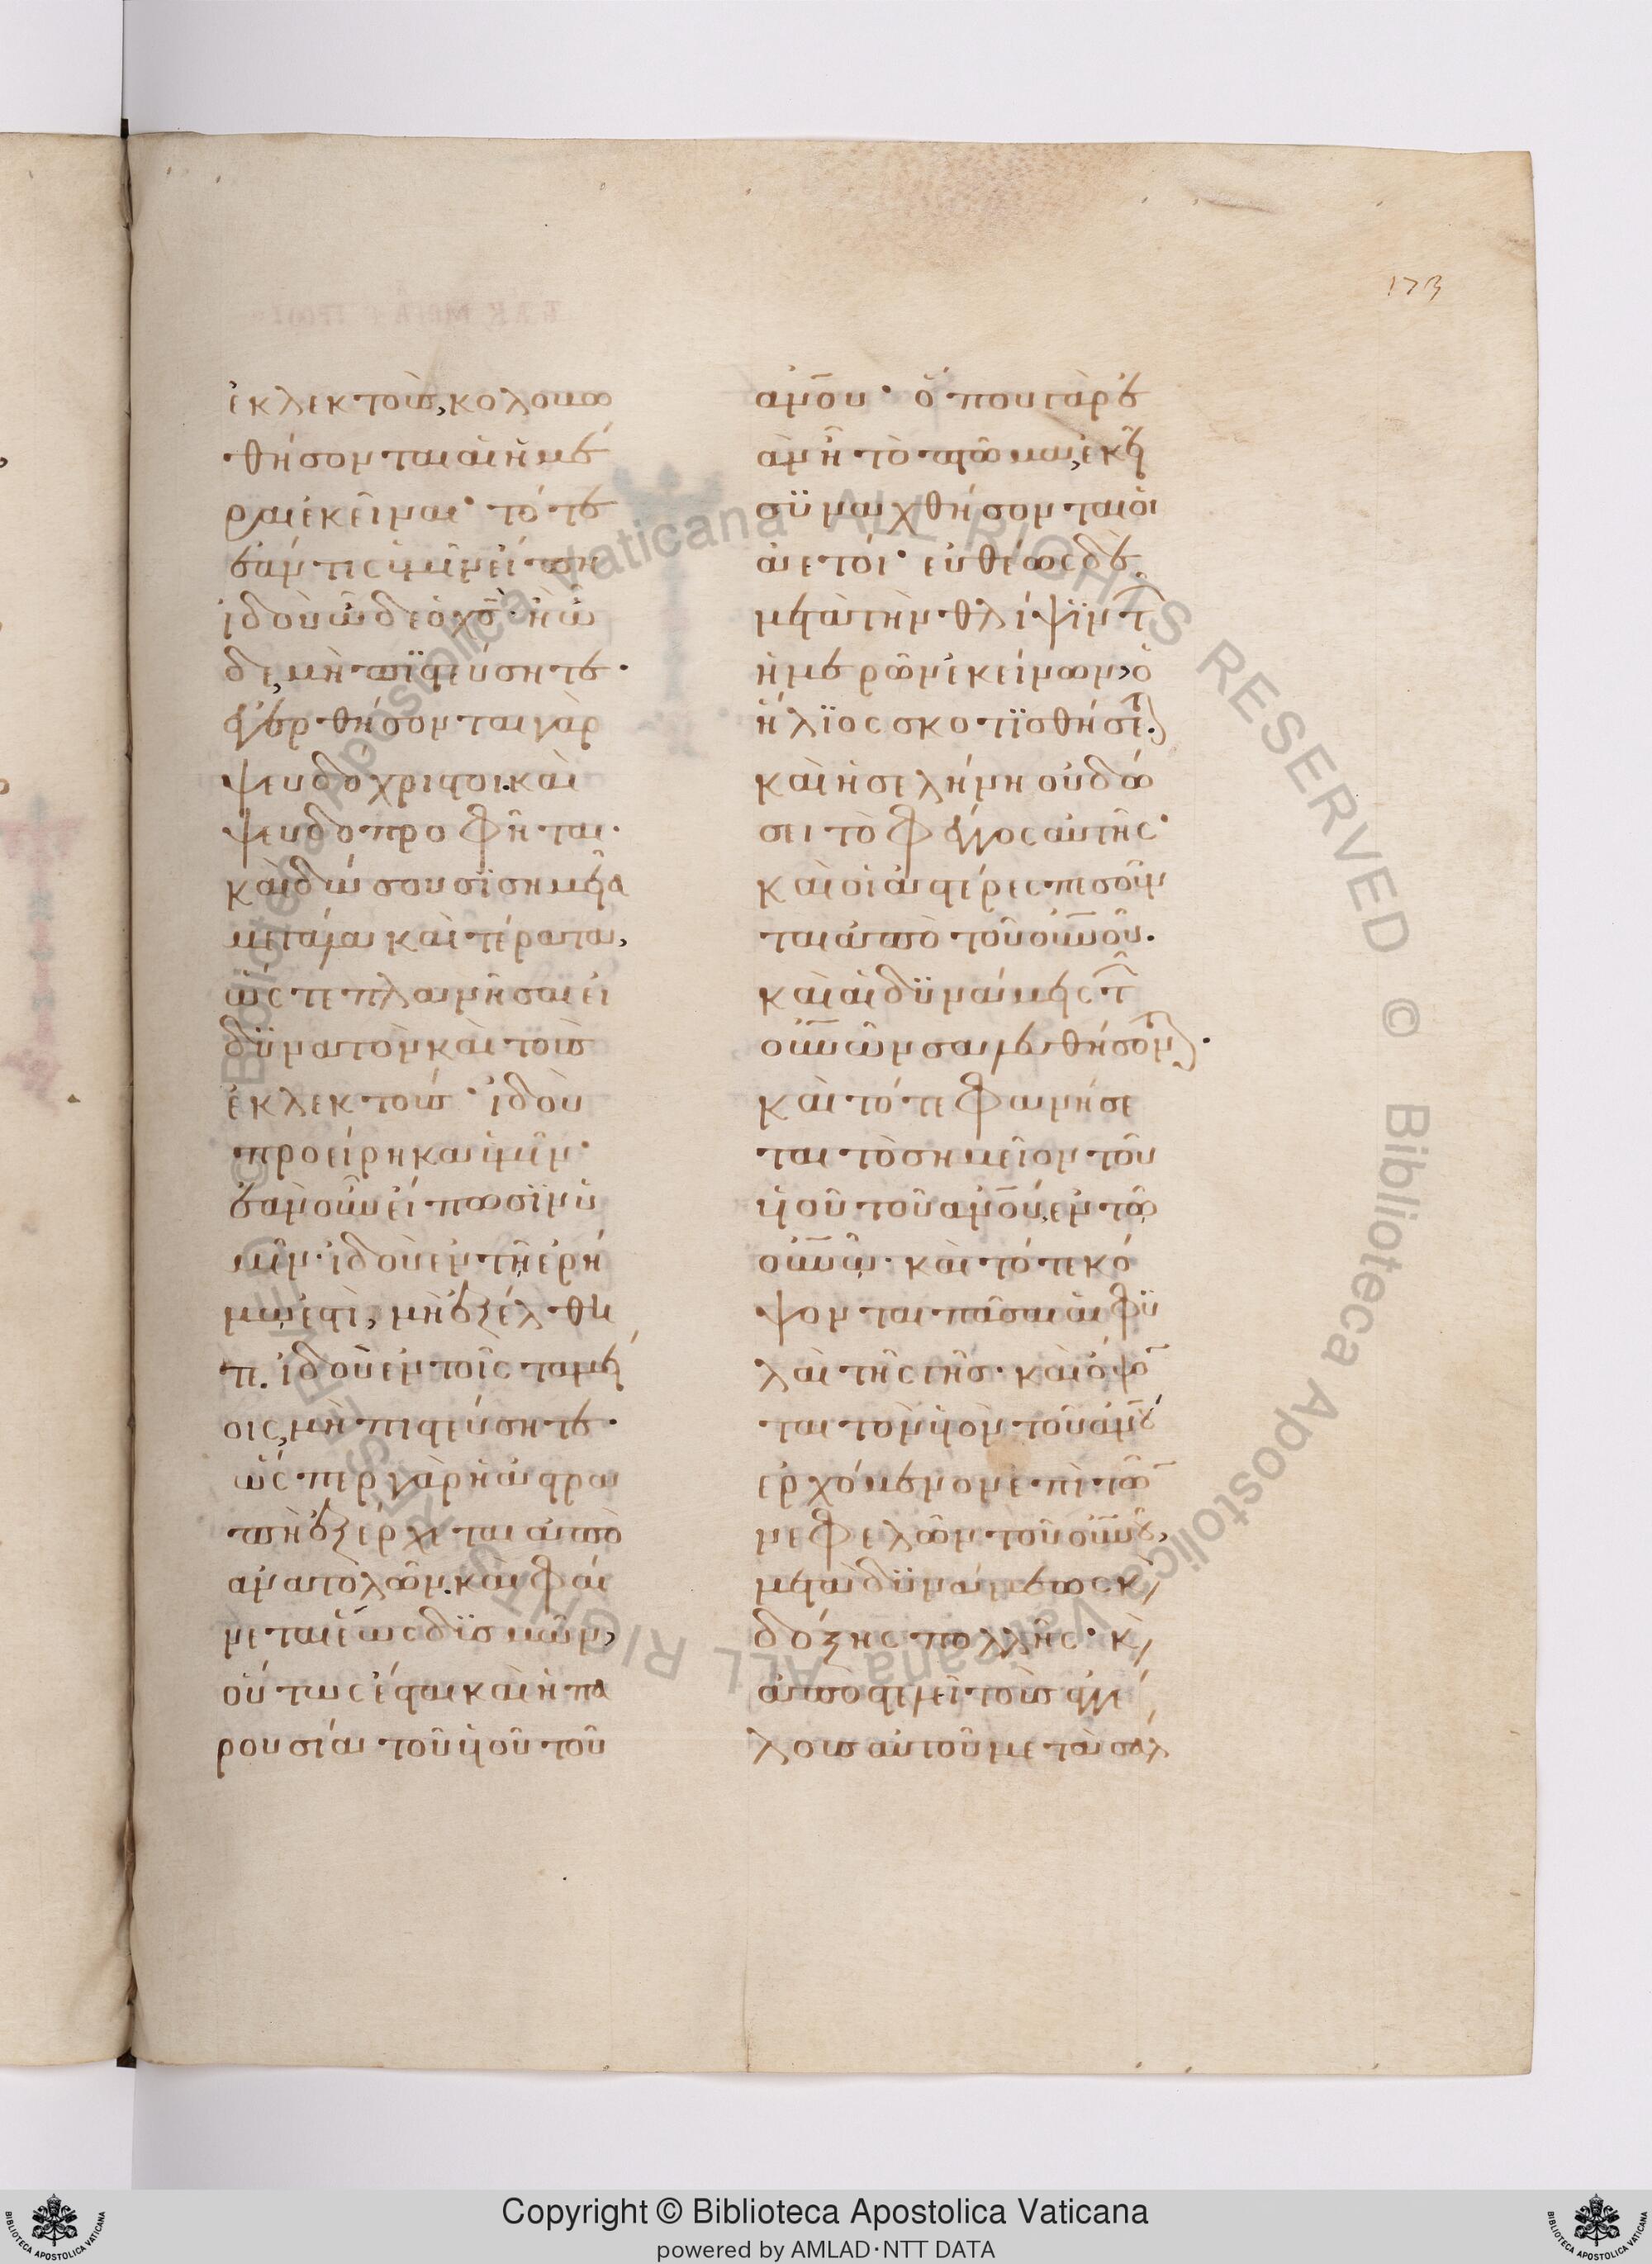 173
ἐκλεκτοὺς, κολοβω
θήσονται αἱ ἡμέ
ραι ἐκεῖναι· τότε
ἐάν τις ὑμῖν εἴπη
ἰδοὺ ὧδε ὁ χς̅· ἢ ὧ
δε, μὴ πϊστεύσητε·
ἐγερθήσονται γὰρ
ψευδόχριστοι. καὶ
ψευδοπροφῆται·
καὶ δώσουσϊ σημεῖα
μεγάλα καὶ τέρατα,
ὥστε πλανῆσαι εἰ
δϋνατὸν καὶ τοὺς
ἐκλεκτούς· ἰδοὺ
προείρηκα ὑμῖν·
ἐὰν οὖν εἴπωσϊν ὑ
μῖν· ἰδοὺ ἐν τῆ ἐρή
μω ἐστὶ, μὴ ἐξέλθη
τε. ἰδοὺ ἐν τοῖς ταμεί
οις, μὴ πιστεύσητε·
ὥσπερ γὰρ ἡ ἀστρα
πὴ ἐξέρχεται ἀπὸ
ἀνατολῶν. καὶ φαί
νεται ἕως δϋσμῶν,
οὕτως ἔσται καὶ ἡ πα
ρουσία τοῦ ὑοῦ τοῦ
ἀν̅ου· ὅπου γὰρ ἐ
ὰν ἦ τὸ πτῶμα, ἐκεῖ
σϋναχθήσονται οἱ
ἀετοί· εὐθέως δὲ
μετὰ τὴν θλίψϊν τῶν
ἡμερῶν ἐκείνων, ὁ
ἥλϊος σκοτϊσθήσεται.
καὶ ἡ σελήνη οὐ δώ
σει τὸ φέγγος αὐτῆς·
καὶ οἱ ἀστέρες πεσοῦν
ται ἀπὸ τοῦ οὐν̅οῦ.
καὶ αἱ δϋνάμεις τῶν
οὐν̅ῶν σαλευθήσονται.
καὶ τότε φανήσε
ται τὸ σημεῖον τοῦ
ὑοῦ τοῦ ἀν̅ου, ἐν τῶ
οὐν̅ῶ· καὶ τότε κό
ψονται πᾶσαι αἱ φϋ
λαὶ τῆς γῆς· καὶ ὄψον
ται τὸν ὑὸν τοῦ ἀν̅ου
ἐρχόμενον ἐπὶ τῶν
νεφελῶν τοῦ οὐν̅οῦ,
μετὰ δϋνάμεως κ,
δόξης πολλῆς· κ,
ἀποστελεῖ τοὺς ἀγγέ
λους αὐτοῦ μετὰ σάλ
© Biblioteca Apostolica Vaticana ALL RIGHTS RESERVED
Copyright © Biblioteca Apostolica Vaticana
powered by AMLAD·NTT DATA
BIBLIOTECA APOSTOLICA VATICANA
BIBLIOTECA APOSTOLICA VATICANA